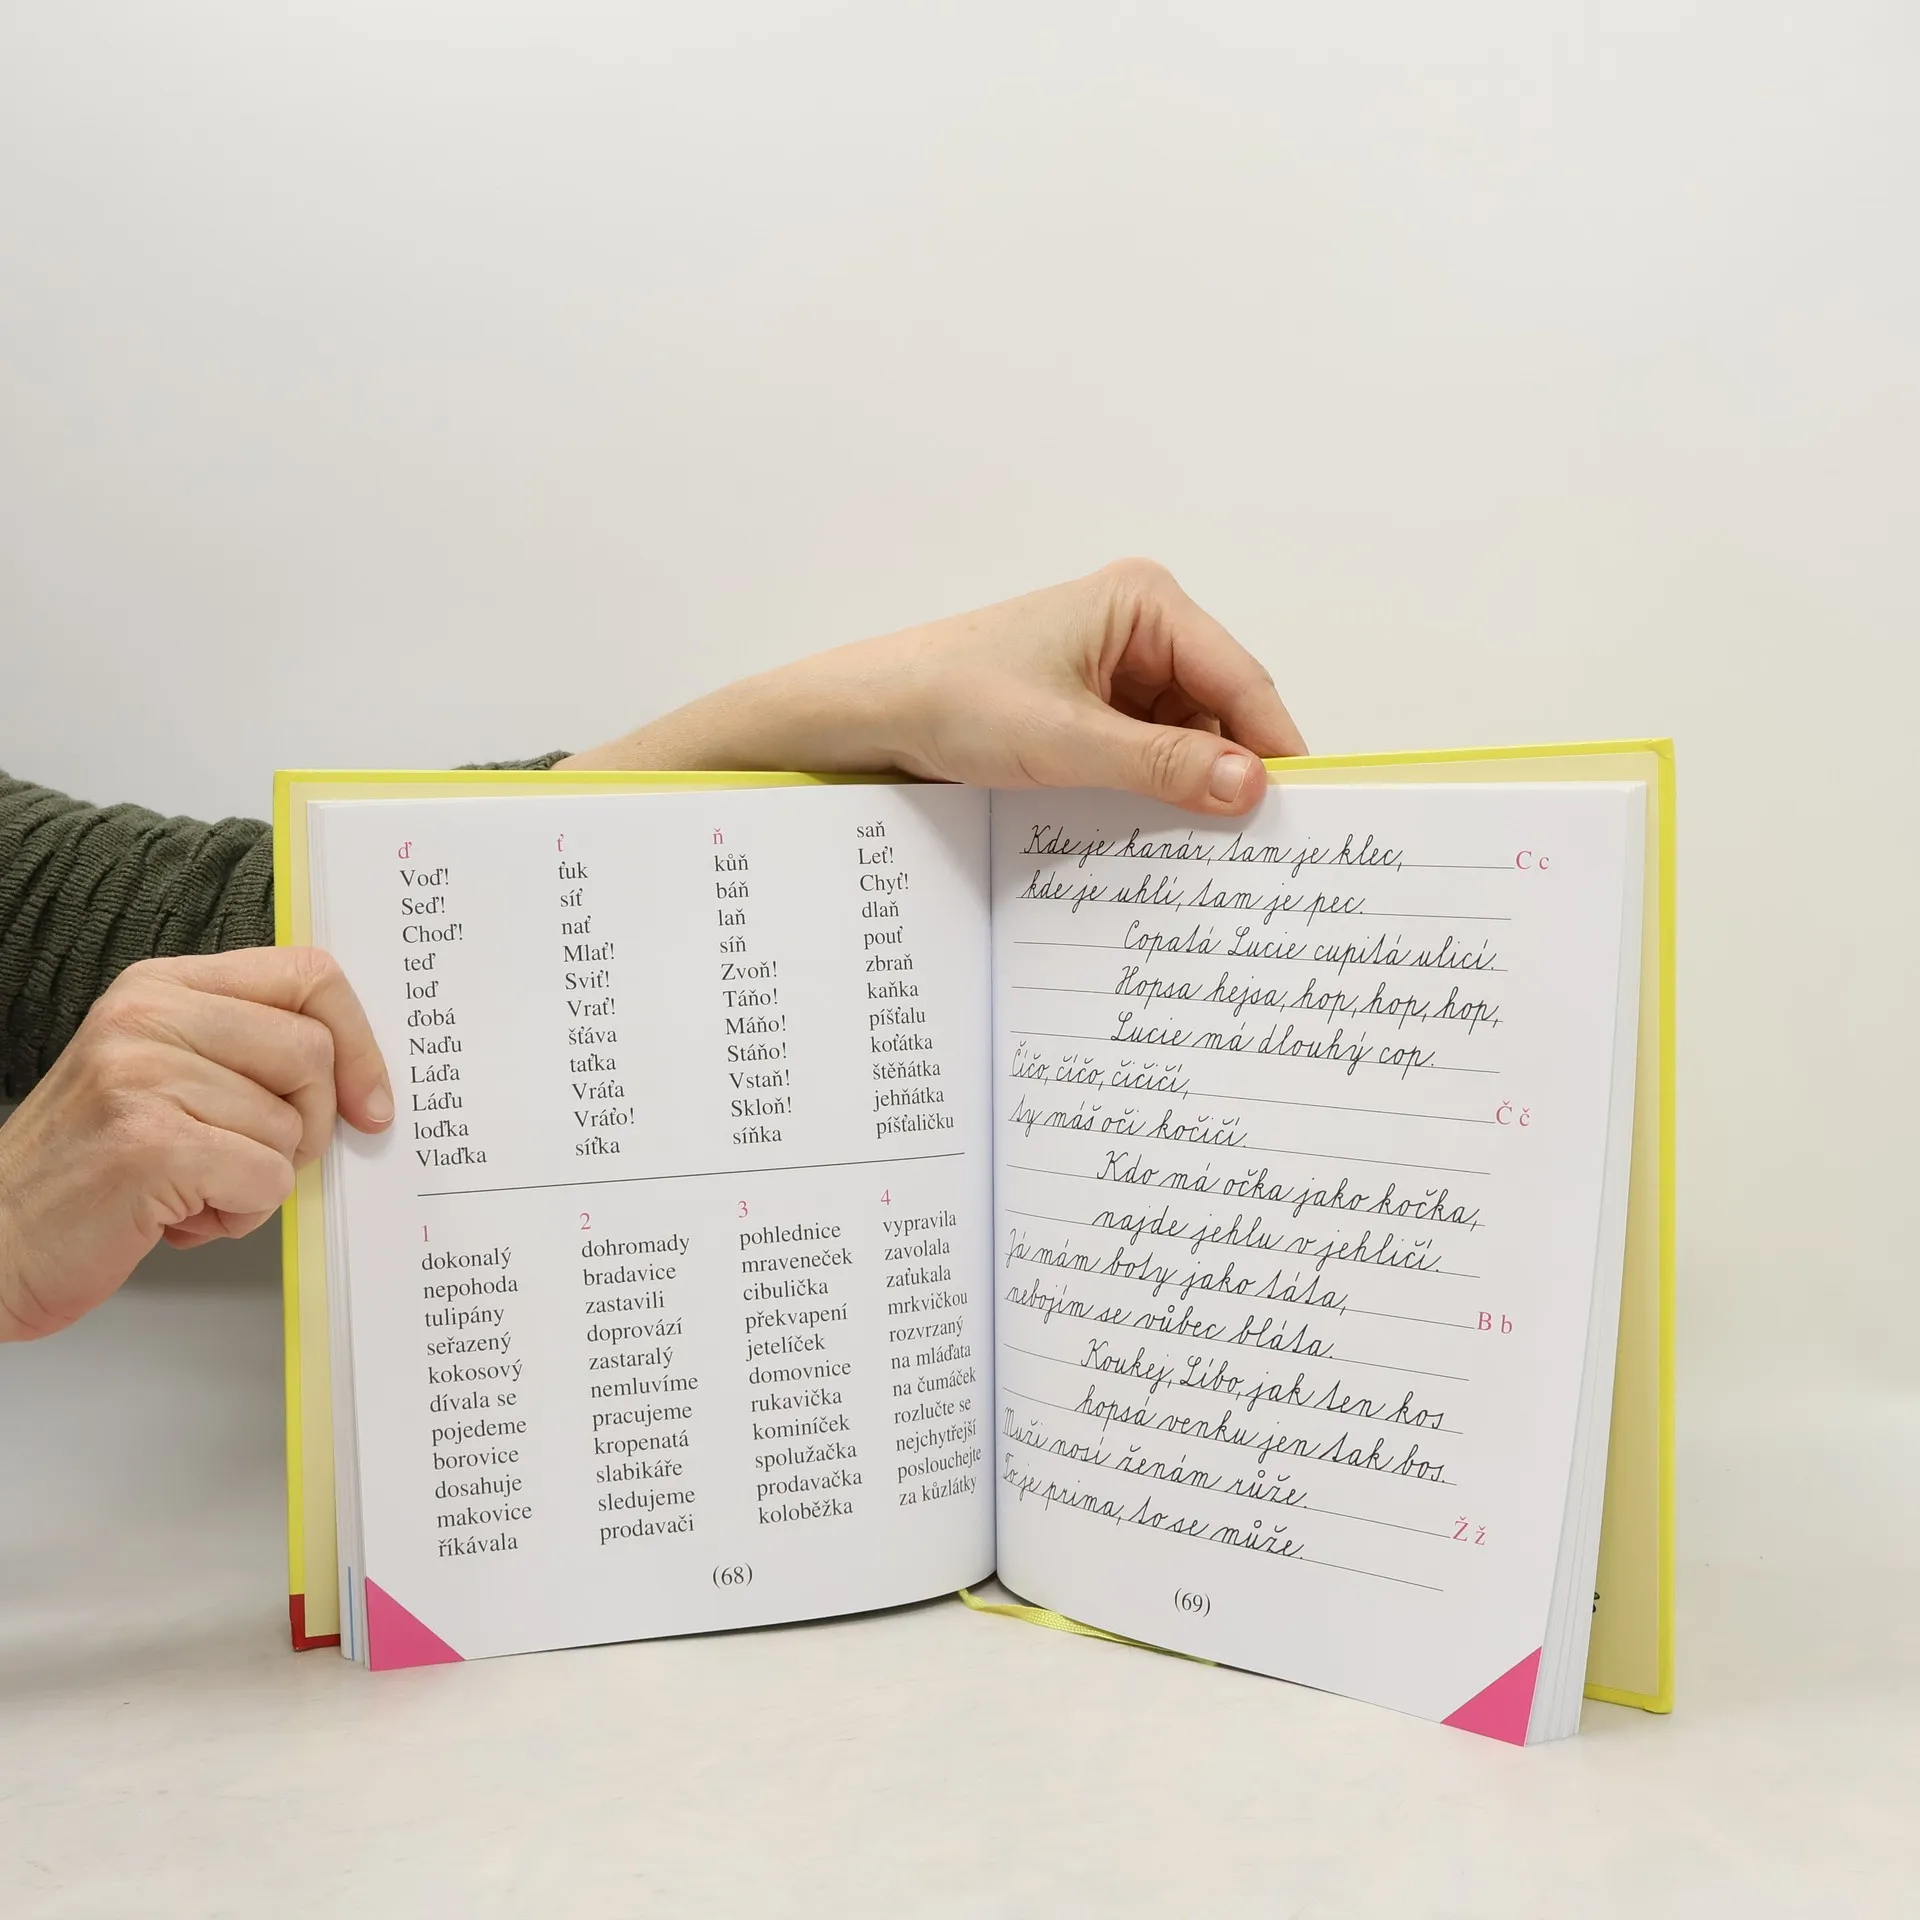 ď
Voď!
Seď!
Choď!
teď
loď
ďobá
Naďu
Láďa
Láďu
loďka
Vlaďka
ť
ťuk
síť
nať
Mlať!
Sviť!
Vrať!
šťáva
taťka
Vráťa
Vráťo!
síťka
ň
kůň
báň
laň
síň
Zvoň!
Táňo!
Máňo!
Stáňo!
Vstaň!
Skloň!
síňka
saň
Leť!
Chyť!
dlaň
pouť
zbraň
kaňka
píšťalu
koťátka
štěňátka
jehňátka
píšťaličku
1
dokonalý
nepohoda
tulipány
seřazený
kokosový
dívala se
pojedeme
borovice
dosahuje
makovice
říkávala
2
dohromady
bradavice
zastavili
doprovází
zastaralý
nemluvíme
pracujeme
kropenatá
slabikáře
sledujeme
prodavači
3
pohlednice
mraveneček
cibulička
překvapení
jetelíček
domovnice
rukavička
kominíček
spolužačka
prodavačka
koloběžka
4
vypravila
zavolala
zaťukala
mrkvičkou
rozvrzaný
na mláďata
na čumáček
rozlučte se
nejchytřejší
poslouchejte
za kůzlátky
(68)
Kde je kanár, tam je klec, C c
kde je uhlí, tam je pec.
Copatá Lucie cupitá ulicí.
Hopsa hejsa, hop, hop, hop,
Lucie má dlouhý cop.
Číčo, číčo, čičičí, Č č
ty máš oči kočičí.
Kdo má očka jako kočka,
najde jehlu v jehličí.
Já mám boty jako táta, B b
nebojím se vůbec bláta.
Koukej, Líbo, jak ten kos
hopsá venku jen tak bos.
Muži nosí ženám růže. Ž ž
To je prima, to se může.
(69)